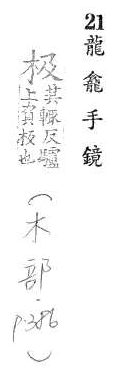 21 龍龕手鏡
极 其輒反驢
上負板也
(木部·p.386)